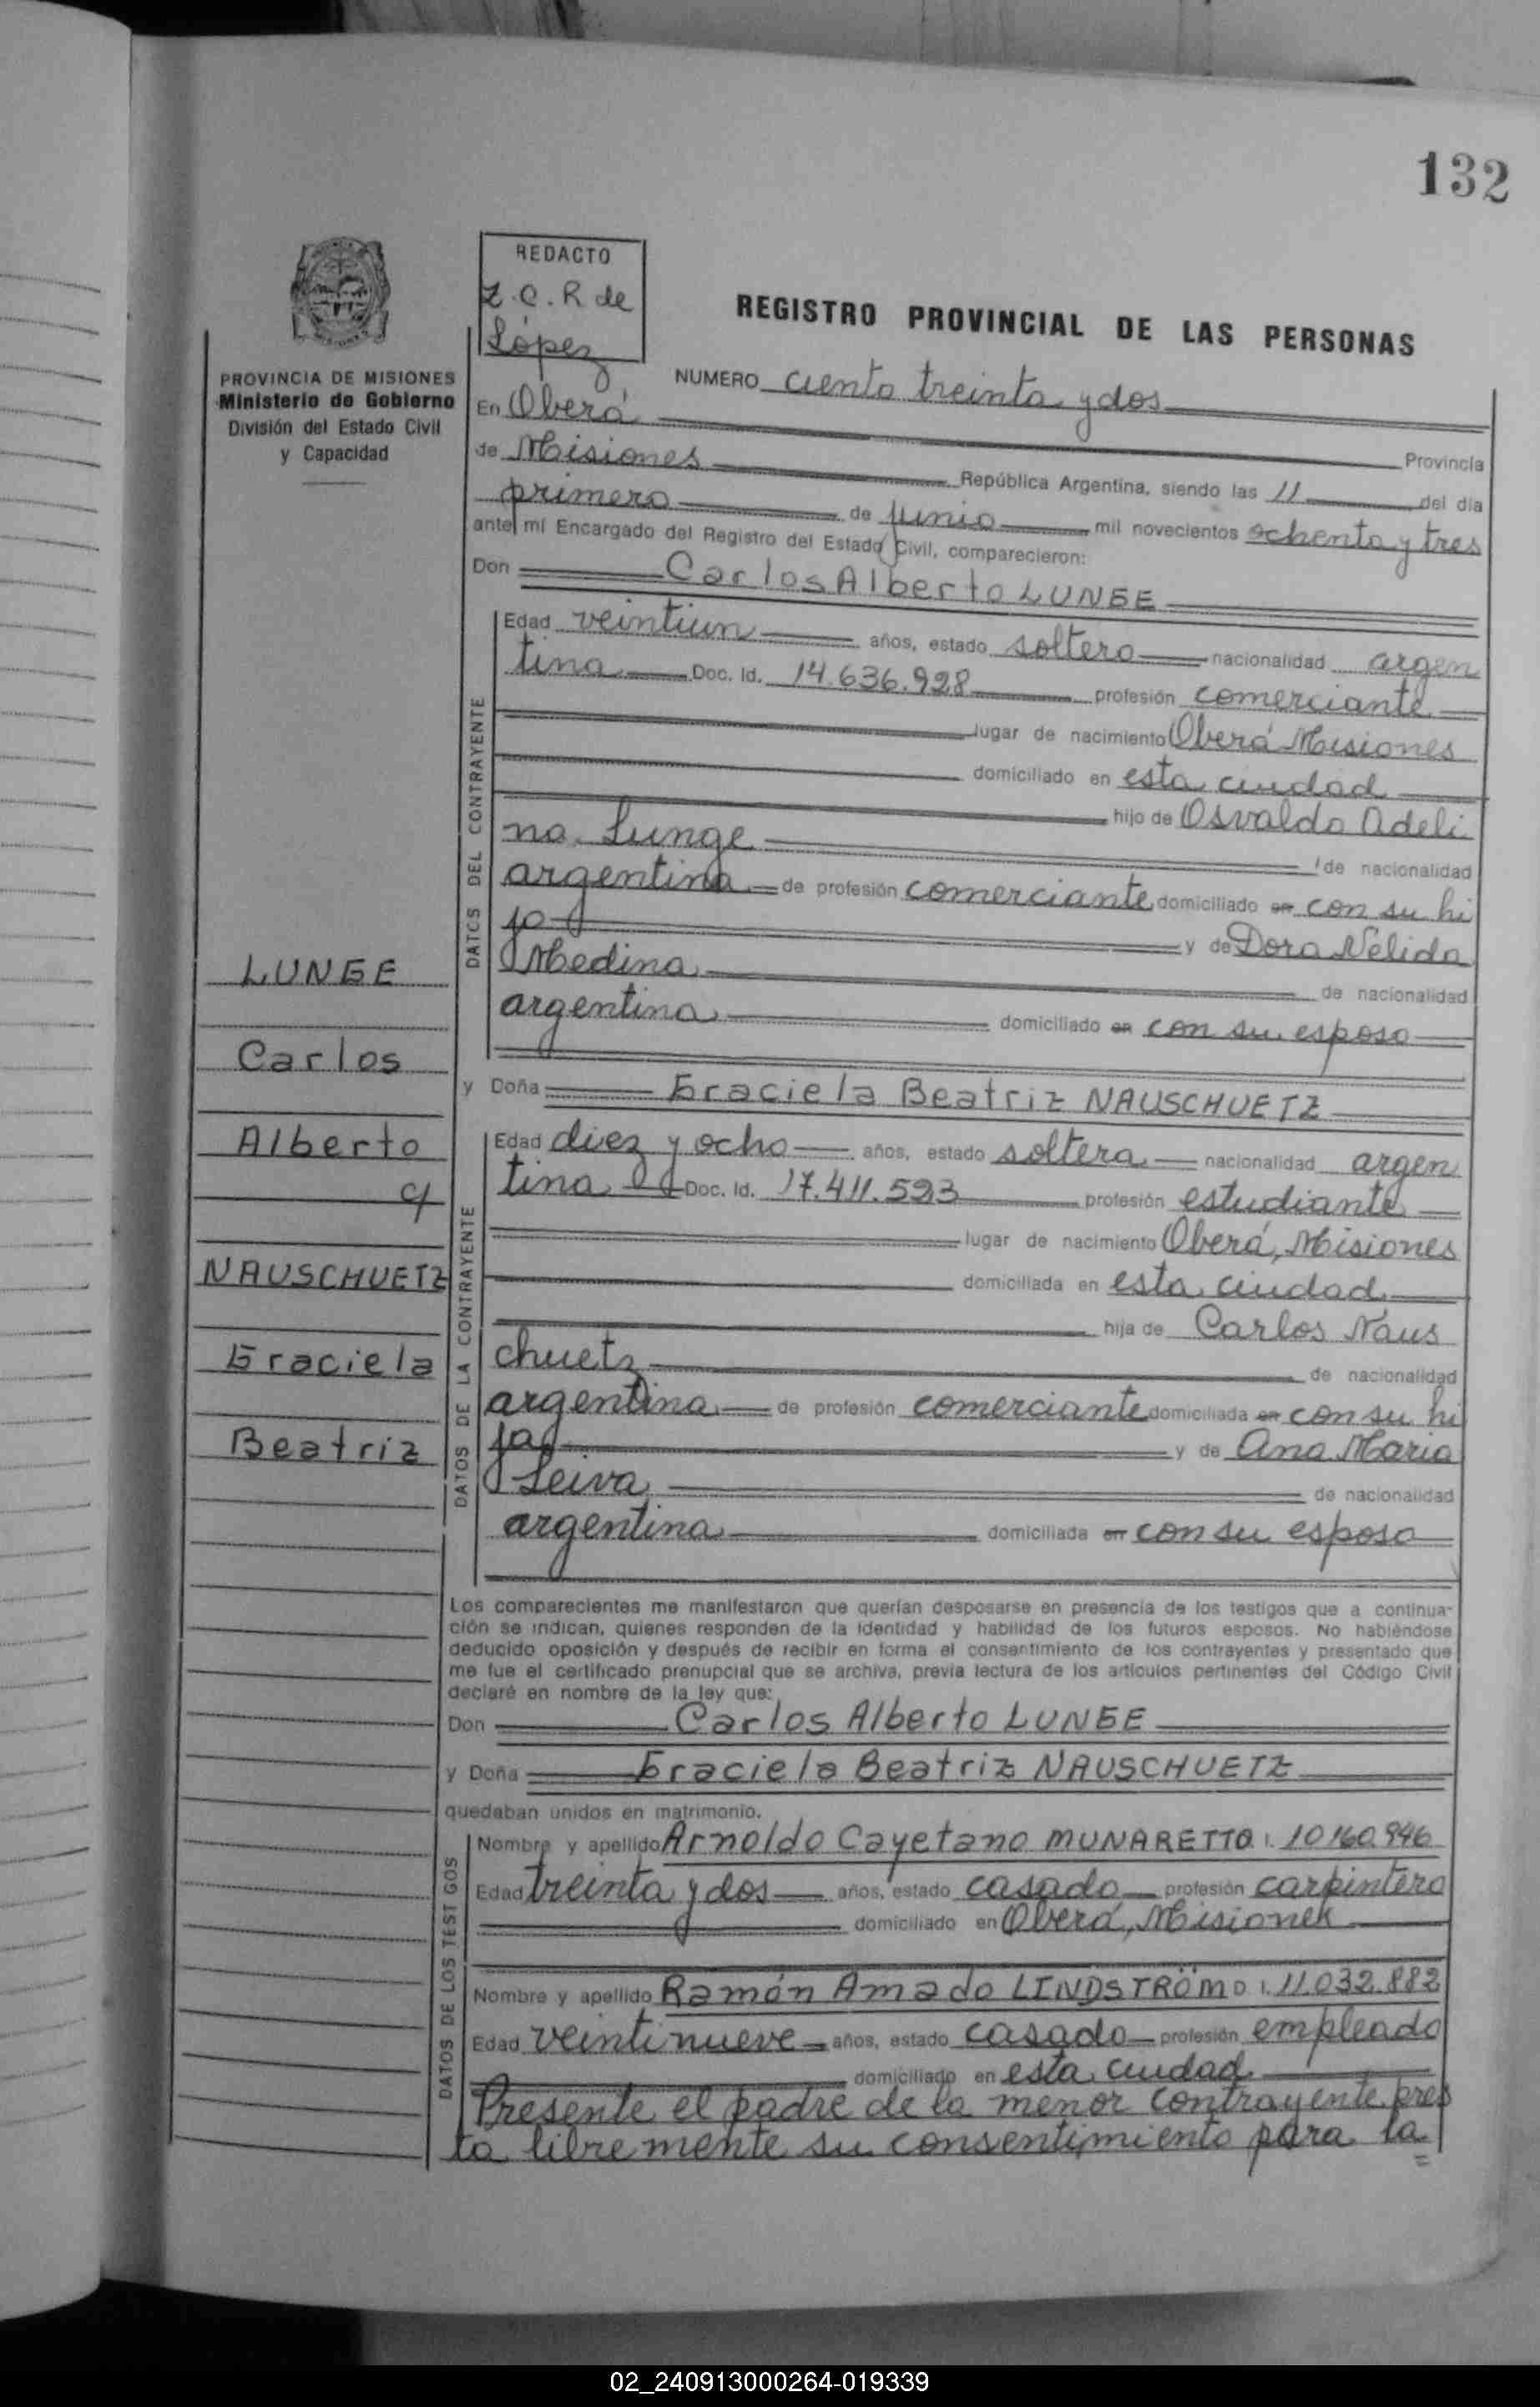 132
REDACTO
Z.C.R de
López
REGISTRO PROVINCIAL DE LAS PERSONAS
PROVINCIA DE MISIONES
Ministerio de Gobierno
División del Estado Civil
y Capacidad
NUMERO ciento treinta y dos
En Oberá
Provincia
de Misiones República Argentina, siendo las 11 del día
primero de junio mil novecientos ochenta y tres
ante mí Encargado del Registro del Estado Civil, comparecieron:
Don Carlos Alberto LUNGE
DATOS DEL CONTRAYENTE
Edad veintiun años, estado soltero nacionalidad argen
tina Doc. Id. 14.636.928 profesión comerciante
lugar de nacimiento Oberá Misiones
domiciliado en esta ciudad
hijo de Osvaldo Adeli
no Lunge de nacionalidad
argentina de profesión comerciante domiciliado en con su hi
jo y de Dora Nelida
Medina de nacionalidad
argentina domiciliado en con su esposo
y Doña Graciela Beatriz NAUSCHUETZ
DATOS DE LA CONTRAYENTE
Edad diez y ocho años, estado soltera nacionalidad argen
tina Doc. Id. 17.411.593 profesión estudiante
lugar de nacimiento Oberá, Misiones
domiciliada en esta ciudad
hija de Carlos Naus
chuetz de nacionalidad
argentina de profesión comerciante domiciliada en con su hi
ja y de Ana Maria
Leiva de nacionalidad
argentina domiciliada en con su esposo
LUNGE
Carlos
Alberto
c/
NAUSCHUETZ
Graciela
Beatriz
Los comparecientes me manifestaron que querían desposarse en presencia de los testigos que a continua-
ción se indican, quienes responden de la identidad y habilidad de los futuros esposos. No habiéndose
deducido oposición y después de recibir en forma el consentimiento de los contrayentes y presentado que
me fue el certificado prenupcial que se archiva, previa lectura de los artículos pertinentes del Código Civil
declaré en nombre de la ley que:
Don Carlos Alberto LUNGE
y Doña Graciela Beatriz NAUSCHUETZ
quedaban unidos en matrimonio.
DATOS DE LOS TESTIGOS
Nombre y apellido Arnoldo Cayetano MUNARETTO D.I. 10160.946
Edad treinta y dos años, estado casado profesión carpintero
domiciliado en Oberá, Misiones
Nombre y apellido Ramón Amado LINDSTRÖM D.I. 11.032.882
Edad veintinueve años, estado casado profesión empleado
domiciliado en esta ciudad
Presente el padre de la menor contrayente pres
ta libremente su consentimiento para la
02_240913000264-019339